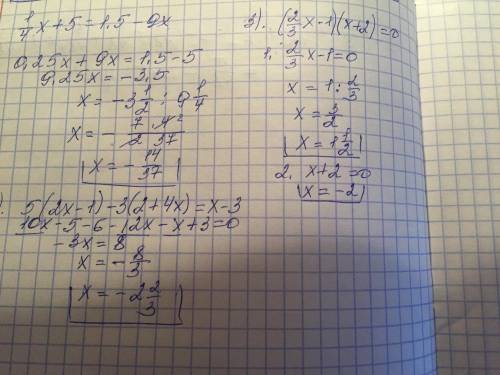 1/4 x + 5 = 1,5 - 9x
0,25x + 9x = 1,5 - 5
9,25x = -3,5
x = -3 1/2 : 9 1/4
x = - 7·4² / 2·37
x = - 14/37
). 5(2x-1) - 3(2+4x) = x-3
10x - 5 - 6 - 12x - x + 3 = 0
-3x = 8
x = - 8/3
x = - 2 2/3
3). (2/3 x - 1)(x+2) = 0
1. 2/3 x - 1 = 0
x = 1 : 2/3
x = 3/2
x = 1 1/2
2. x+2 = 0
x = -2